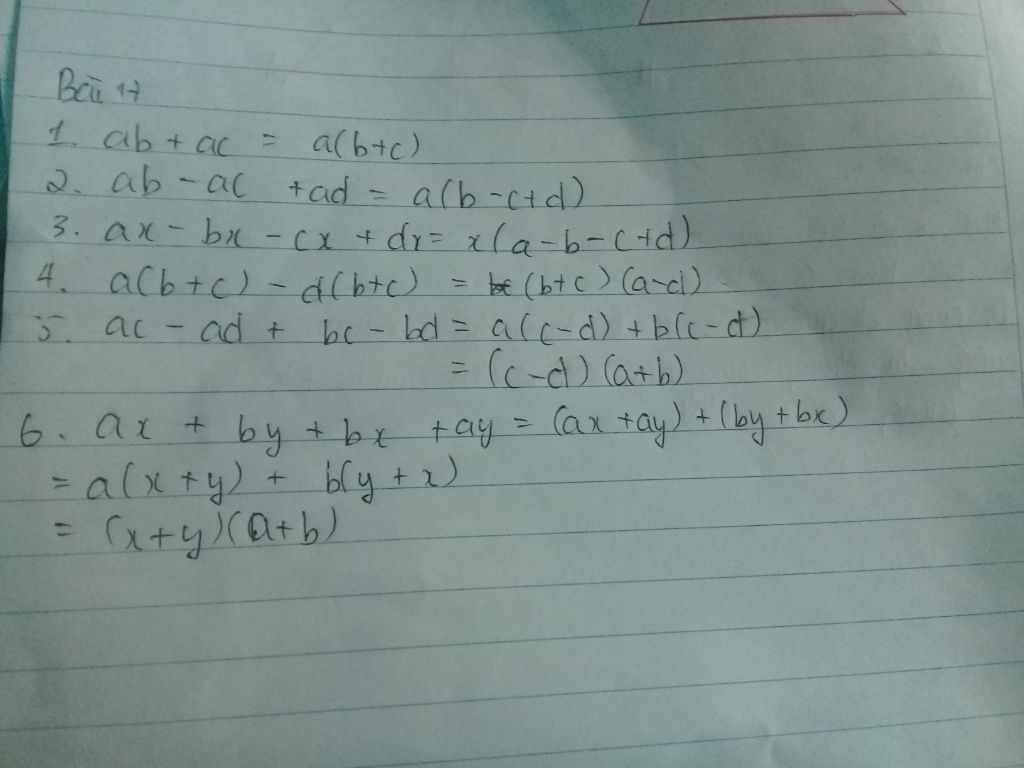 Bài 17
1. ab + ac = a(b+c)
2. ab - ac + ad = a(b-c+d)
3. ax - bx - cx + dx = x(a-b-c+d)
4. a(b+c) - d(b+c) = (b+c)(a-d)
5. ac - ad + bc - bd = a(c-d) + b(c-d)
= (c-d)(a+b)
6. ax + by + bx + ay = (ax + ay) + (by + bx)
= a(x+y) + b(y+x)
= (x+y)(a+b)